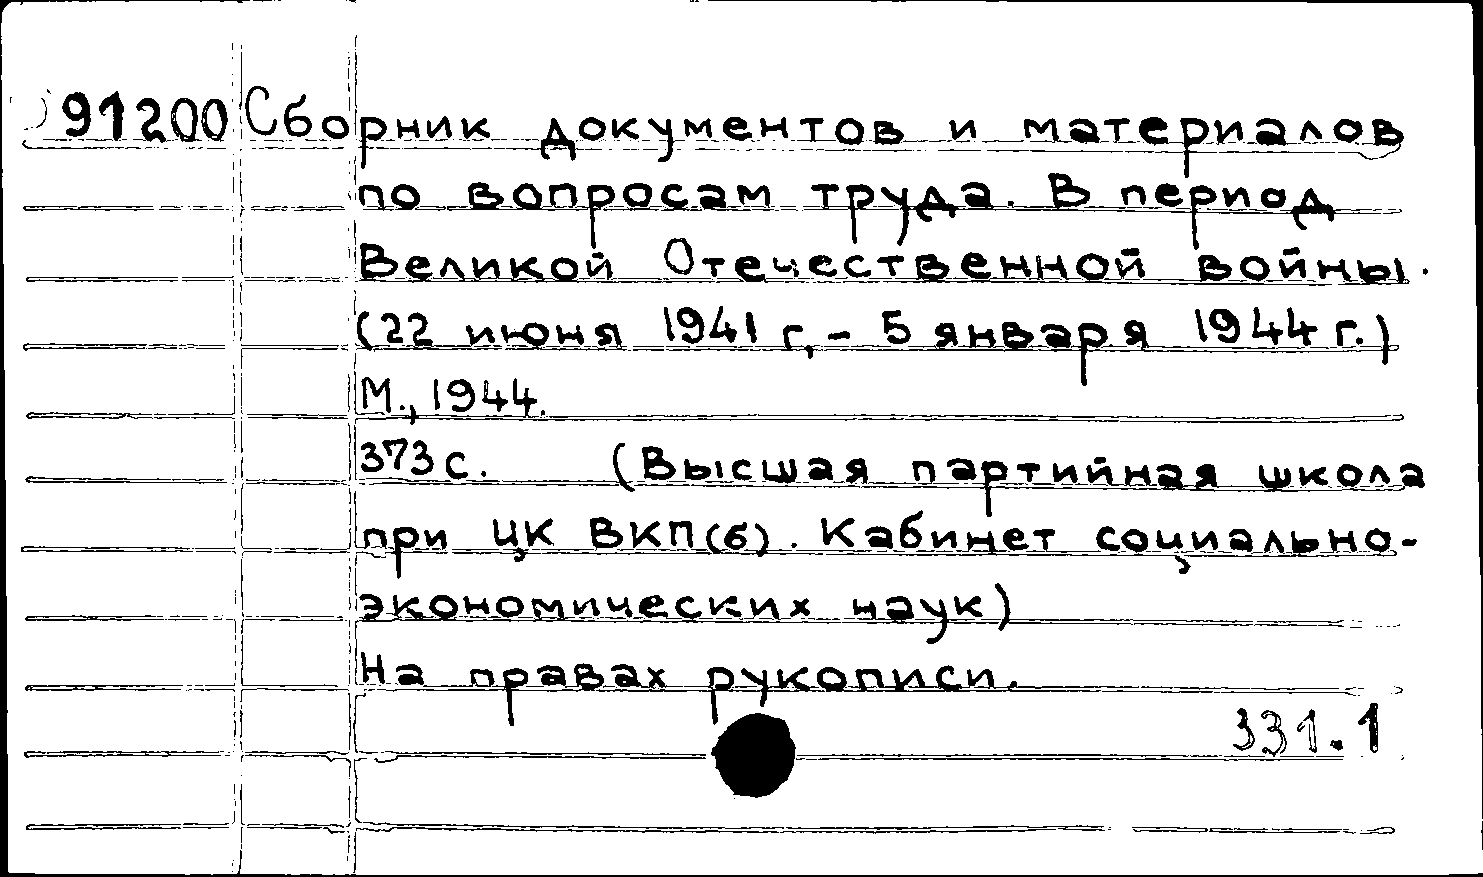 91200 Сборник документов и материалов
по вопросам труда. В период
Великой Отечественной войны.
(22 июня 1941 г, - 5 января 1944 г.)
М., 1944.
373 с. (Высшая партийная школа
при ЦК ВКП(б). Кабинет социально-
экономических наук)
На правах рукописи.
331.1